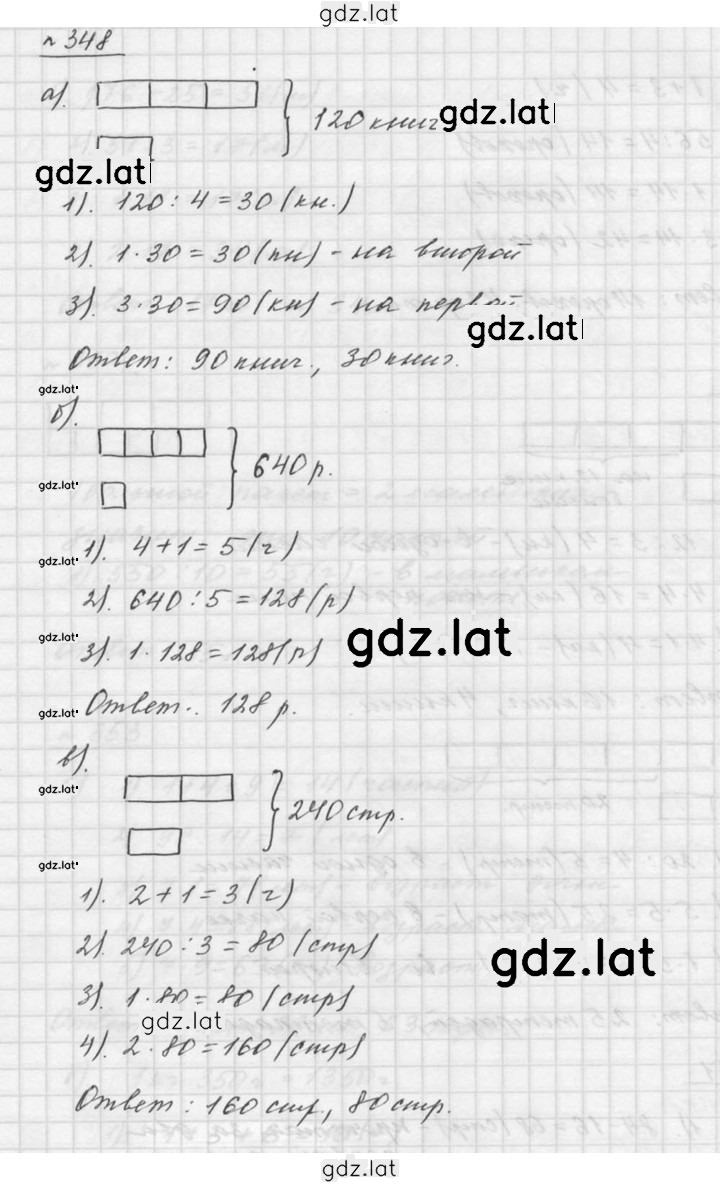 gdz.lat
№ 348
а). 120 книг gdz.lat
gdz.lat
1). 120 : 4 = 30 (кн.)
2). 1 · 30 = 30 (кн) - на второй
3). 3 · 30 = 90 (кн) - на первой
gdz.lat
Ответ: 90 книг., 30 книг.
gdz.lat
б).
640 р.
gdz.lat
gdz.lat 1). 4 + 1 = 5 (ч)
gdz.lat 2). 640 : 5 = 128 (р)
gdz.lat 3). 1 · 128 = 128 (р) gdz.lat
gdz.lat Ответ.. 128 р.
в).
gdz.lat
240 стр.
gdz.lat
1). 2 + 1 = 3 (ч)
2). 240 : 3 = 80 (стр) gdz.lat
3). 1 · 80 = 80 (стр)
gdz.lat
4). 2 · 80 = 160 (стр)
Ответ : 160 стр, 80 стр.
gdz.lat